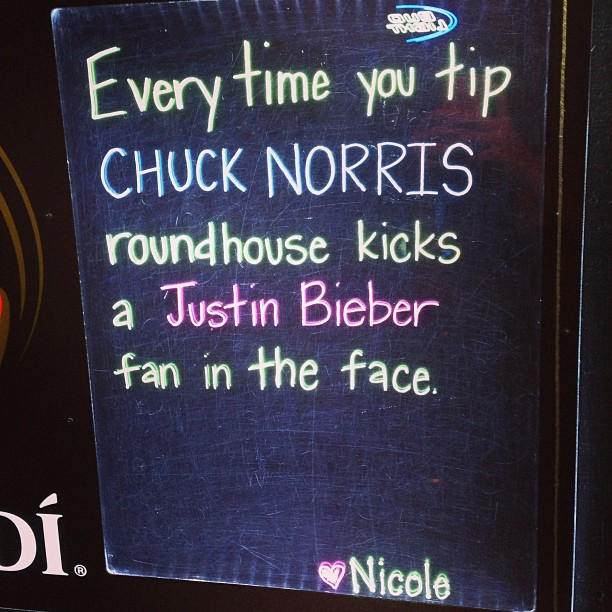 BUD
LIGHT
Every time you tip
CHUCK NORRIS
roundhouse kicks
a Justin Bieber
fan in the face.
Nicole
®